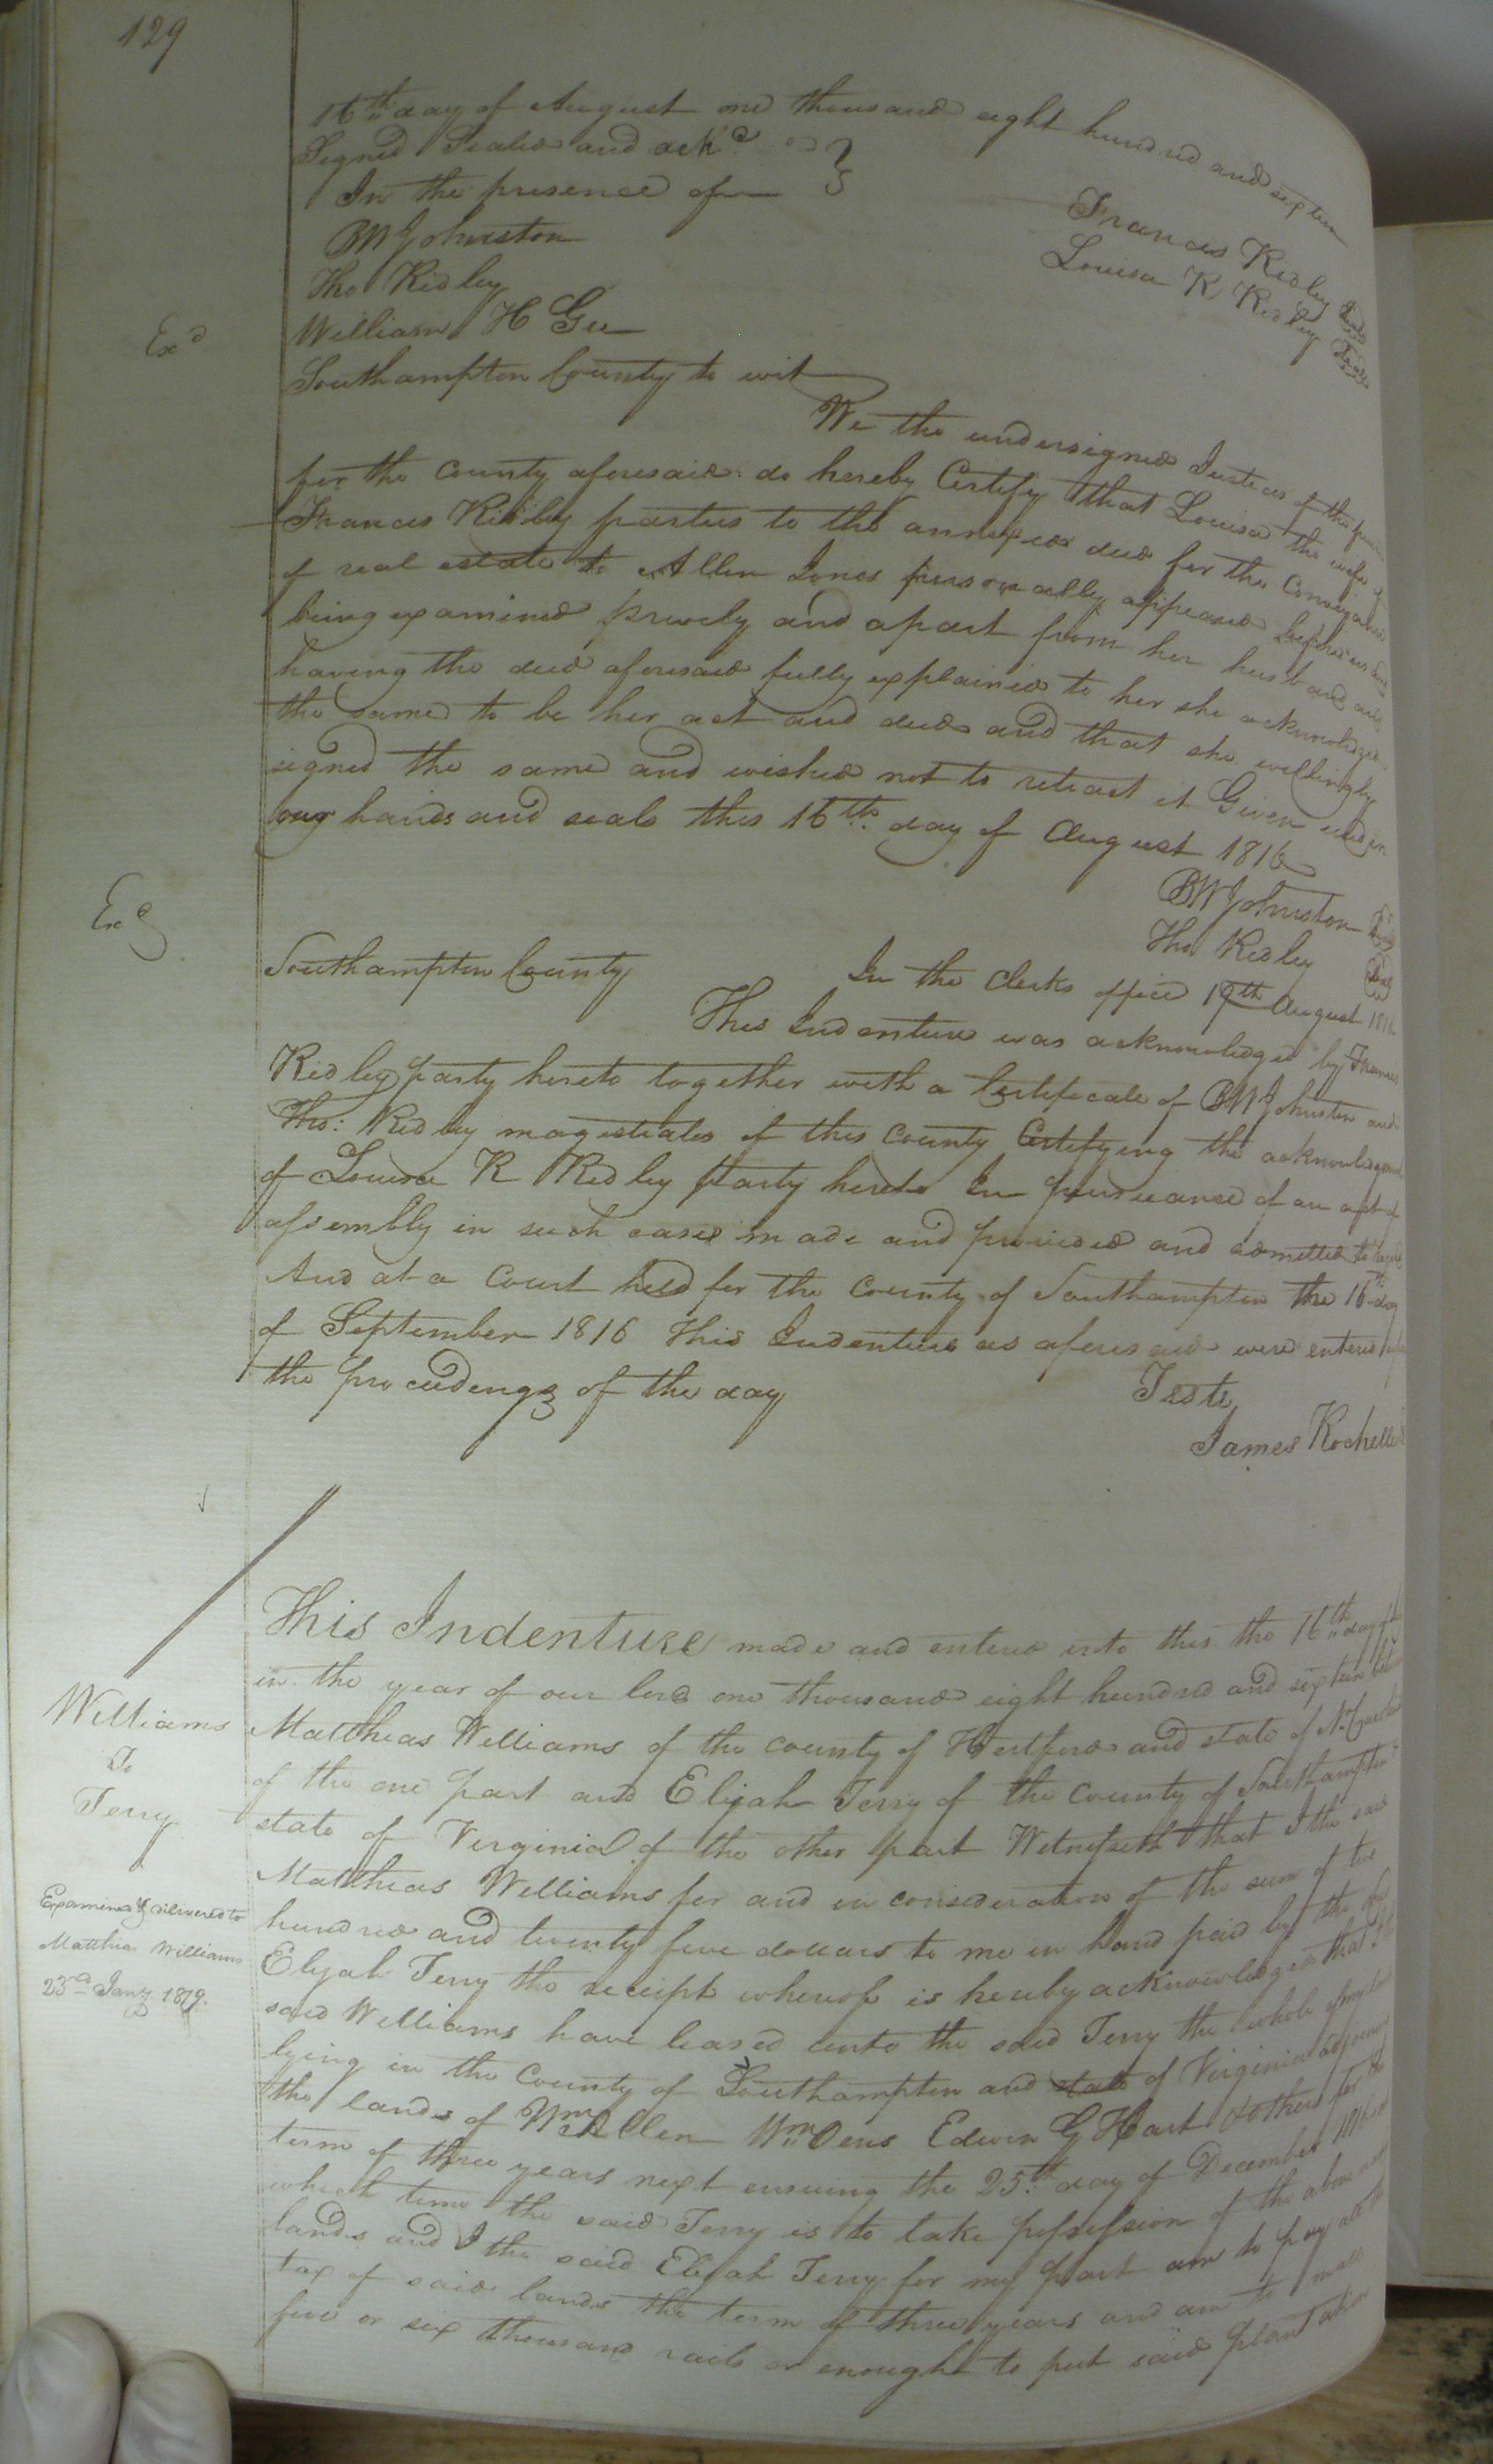 129
16th day of August one thousand eight hundred and sixteen
Signed Sealed and ackd
In the presence of
BW Johnston
Tho Ridley
William H Gee
Frances Ridley Seal
Louisa K Ridley Seal
Exd
Southampton County to wit
We the undersigned Justices of the peace
for the County aforesaid do hereby Certify that Louisa the wife of
Frances Ridley parties to the annexed deed for the Conveyance
of real estate to Allen Jones personally appeared before us and
being examined privily and apart from her husband and
having the deed aforesaid fully explained to her she acknowledged
the same to be her act and deed and that she willingly
signed the same and wished not to retract it Given under
our hands and seals this 16th day of August 1816
BW Johnston Seal
Tho Ridley Seal
Exd
Southampton County
In the Clerks office 19th August 1816
This Indenture was acknowledged by Frances
Ridley party hereto together with a Certificate of BW Johnston and
Tho: Ridley magistrates of this County Certifying the acknowledgment
of Louisa K Ridley party hereto In pursuance of an act of
assembly in such cases made and provided and admitted to record
And at a Court held for the County of Southampton the 16th day
of September 1816 This Indenture as aforesaid were entered
the proceedings of the day
Teste
James Rochelle
Williams
To
Terry
Examined & delivered to
Matthias Williams
23rd Jany 1819.
This Indenture made and entered into this the 16th day of
in the year of our lord one thousand eight hundred and sixteen between
Matthias Williams of the county of Hertford and state of No Carolina
of the one part and Elijah Terry of the County of Southampton
state of Virginia of the other part Witnesseth that I the said
Matthias Williams for and in consideration of the sum of two
hundred and twenty five dollars to me in hand paid by the
Elijah Terry the receipt whereof is hereby acknowledged that I the
said Williams have leased unto the said Terry the whole of my land
lying in the County of Southampton and state of Virginia adjoining
the lands of Wm Allen Wm Dens Edwin G Hart & others for the
term of three years next ensuing the 25th day of December 1816 at
which time the said Terry is to take possession of the above
lands and I the said Elijah Terry for my part am to pay all the
tax of said lands the term of three years and am to mall
five or six thousand rails or enough to put said plantation